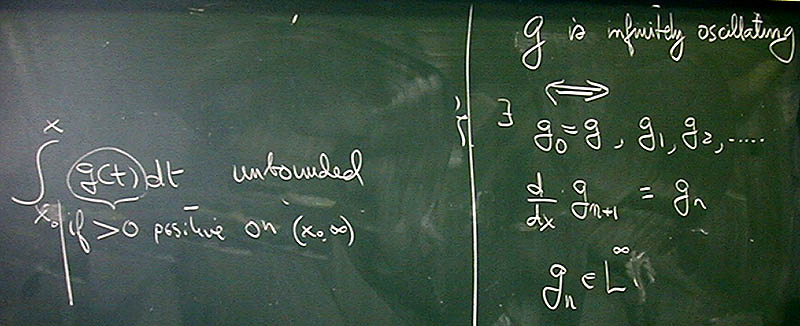 ∫_{x₀}^{x} g(t) dt unbounded
if >0 positive on (x₀,∞)
g is infinitely oscillating
⟺
∃ g₀=g, g₁, g₂, .....
d/dx g_{n+1} = g_n
g_n ∈ L^∞